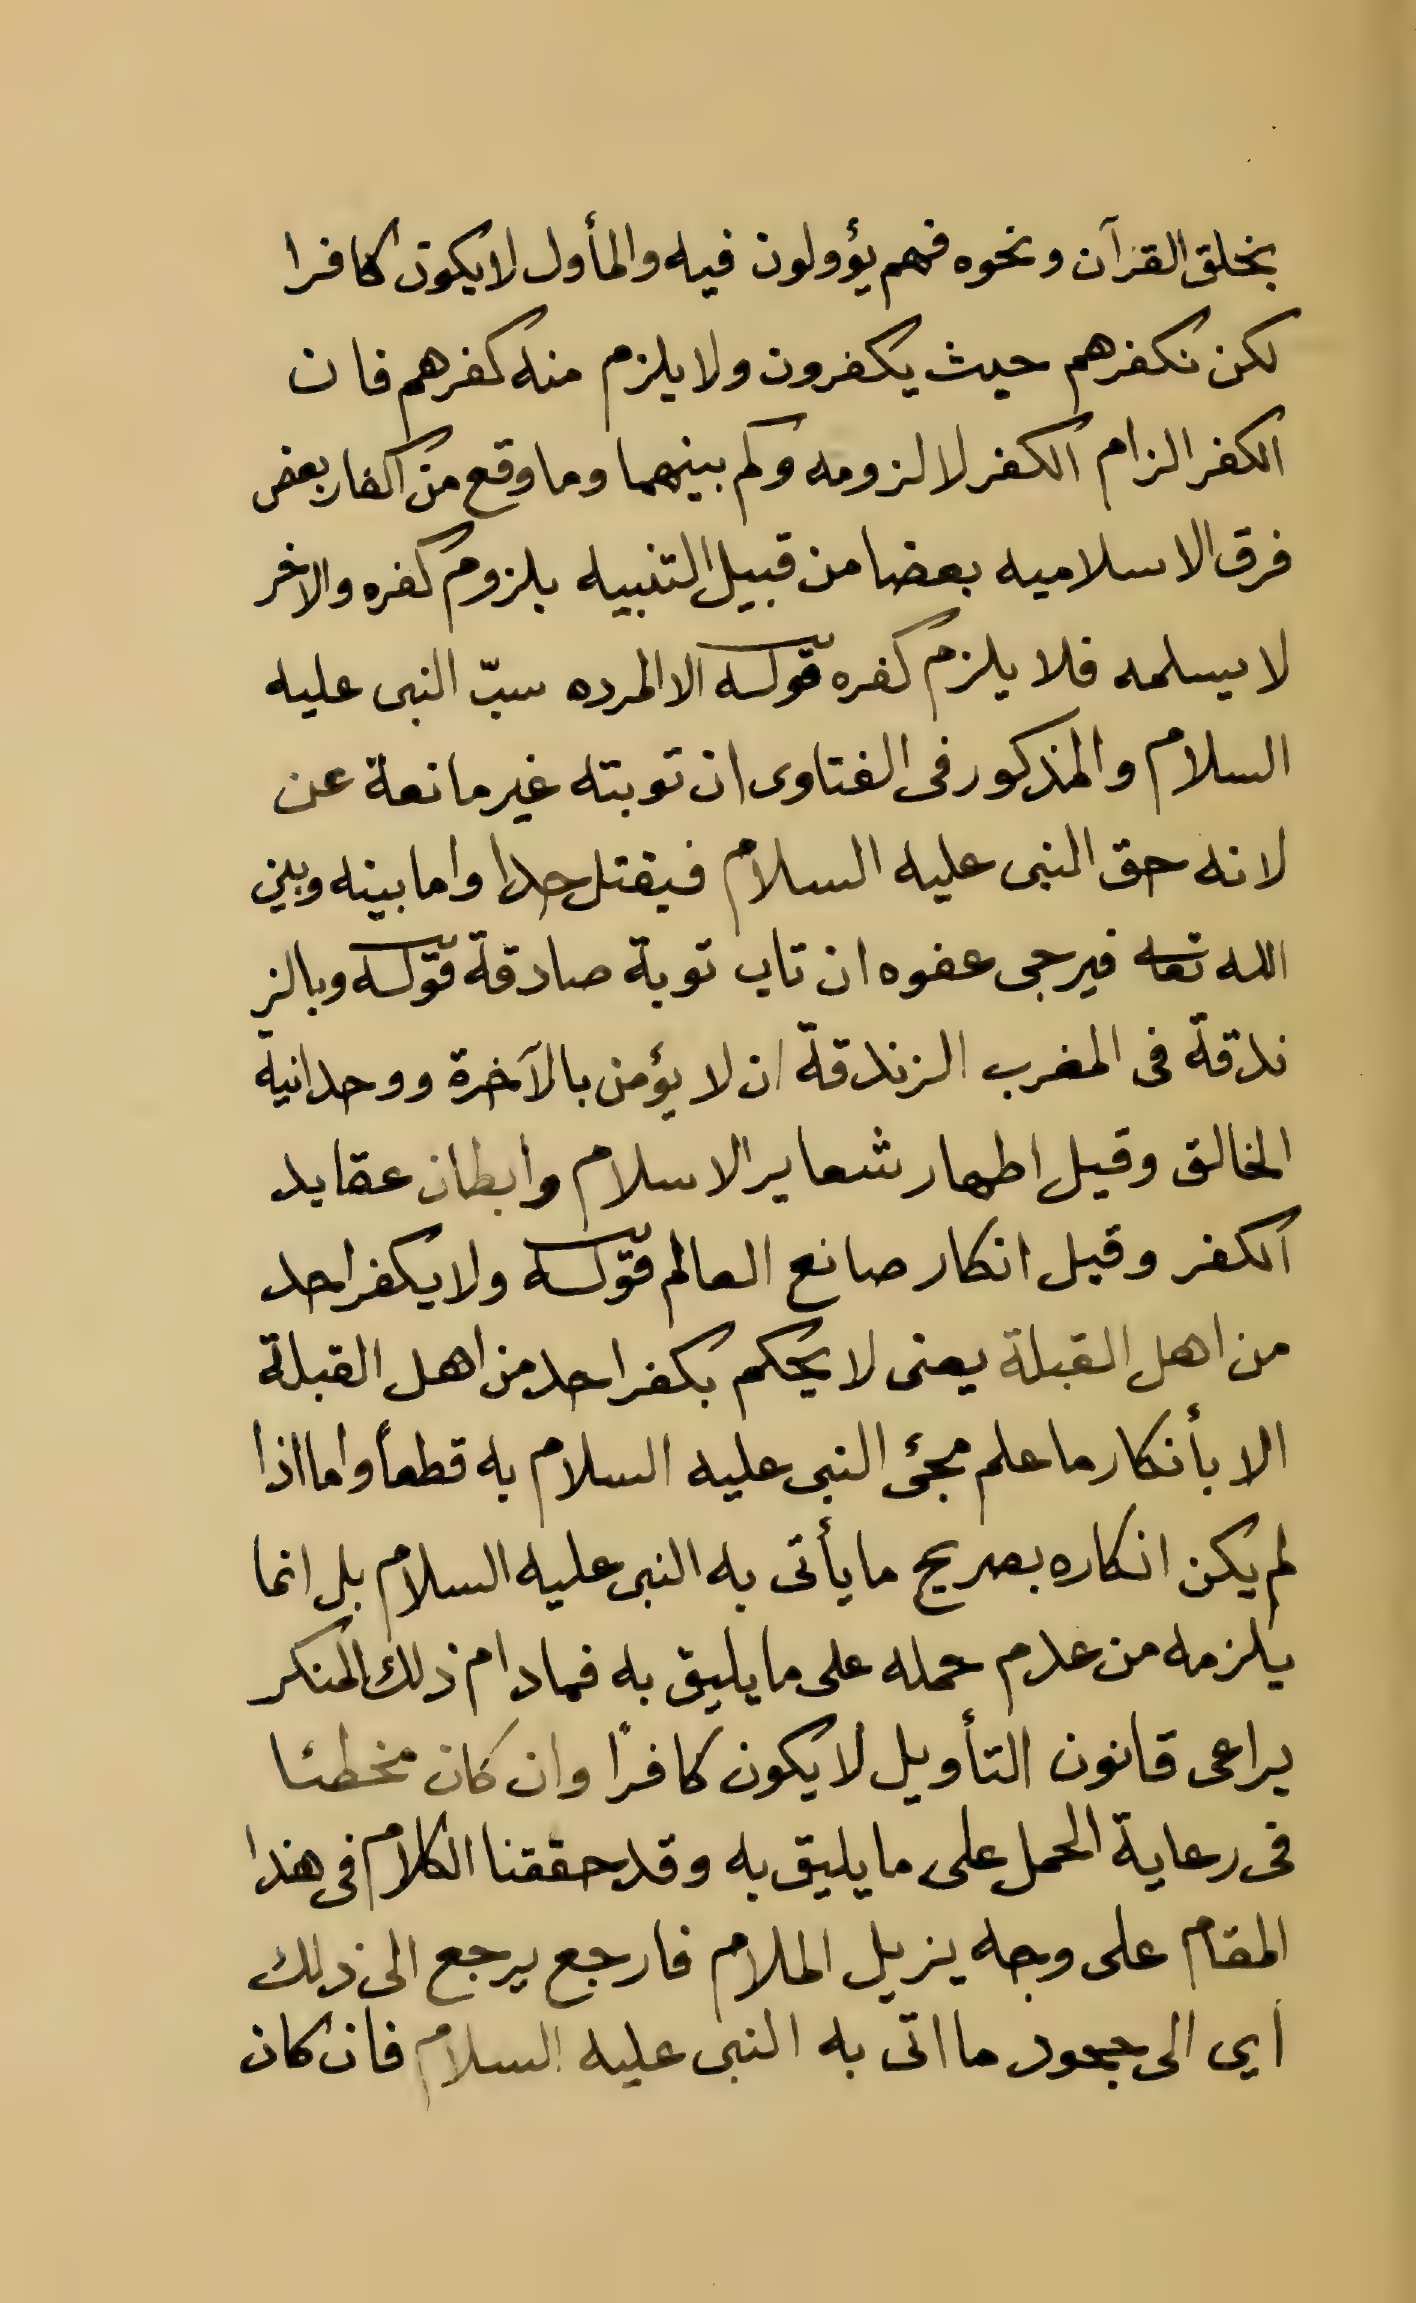 بخلق القرآن ونحوه فهم يؤولون فيه والمأول لا يكون كافرا
لكن نكفرهم حيث يكفرون ولا يلزم منه كفرهم فان
الكفر الزام الكفر لا لزومه وكم بينهما وما وقع من اكفار بعض
فرق الاسلاميه بعضا من قبيل التنبيه بلزوم كفره والاخر
لا يسلمه فلا يلزم كفره قوله الا المرده سبّ النبى عليه
السلام والمذكور فى الفتاوى ان توبته غير مانعة عن
لانه حق النبى عليه السلام فيقتل حدا واما بينه وبين
الله تعا فيرجى عفوه ان تاب توبة صادقة قوله وبالز
ندقة فى المغرب الزندقة ان لا يؤمن بالآخرة ووحدانية
الخالق وقيل اظهار شعاير الاسلام وابطان عقايد
الكفر وقيل انكار صانع العالم قوله ولا يكفر احد
من اهل القبلة يعنى لا يحكم بكفر احد من اهل القبلة
الا بأنكار ما علم مجئ النبى عليه السلام به قطعاً واما اذا
لم يكن انكاره بصريح ما يأتى به النبى عليه السلام بل انما
يلزمه من عدم حمله على ما يليق به فمادام ذلك المنكر
يراعى قانون التأويل لا يكون كافرًا وان كان مخطئا
فى رعاية الحمل على ما يليق به وقد حققنا الكلام فى هذا
المقام على وجه يزيل الملام فارجع يرجع الى ذلك
اي الى جحود ما اتى به النبى عليه السلام فان كان